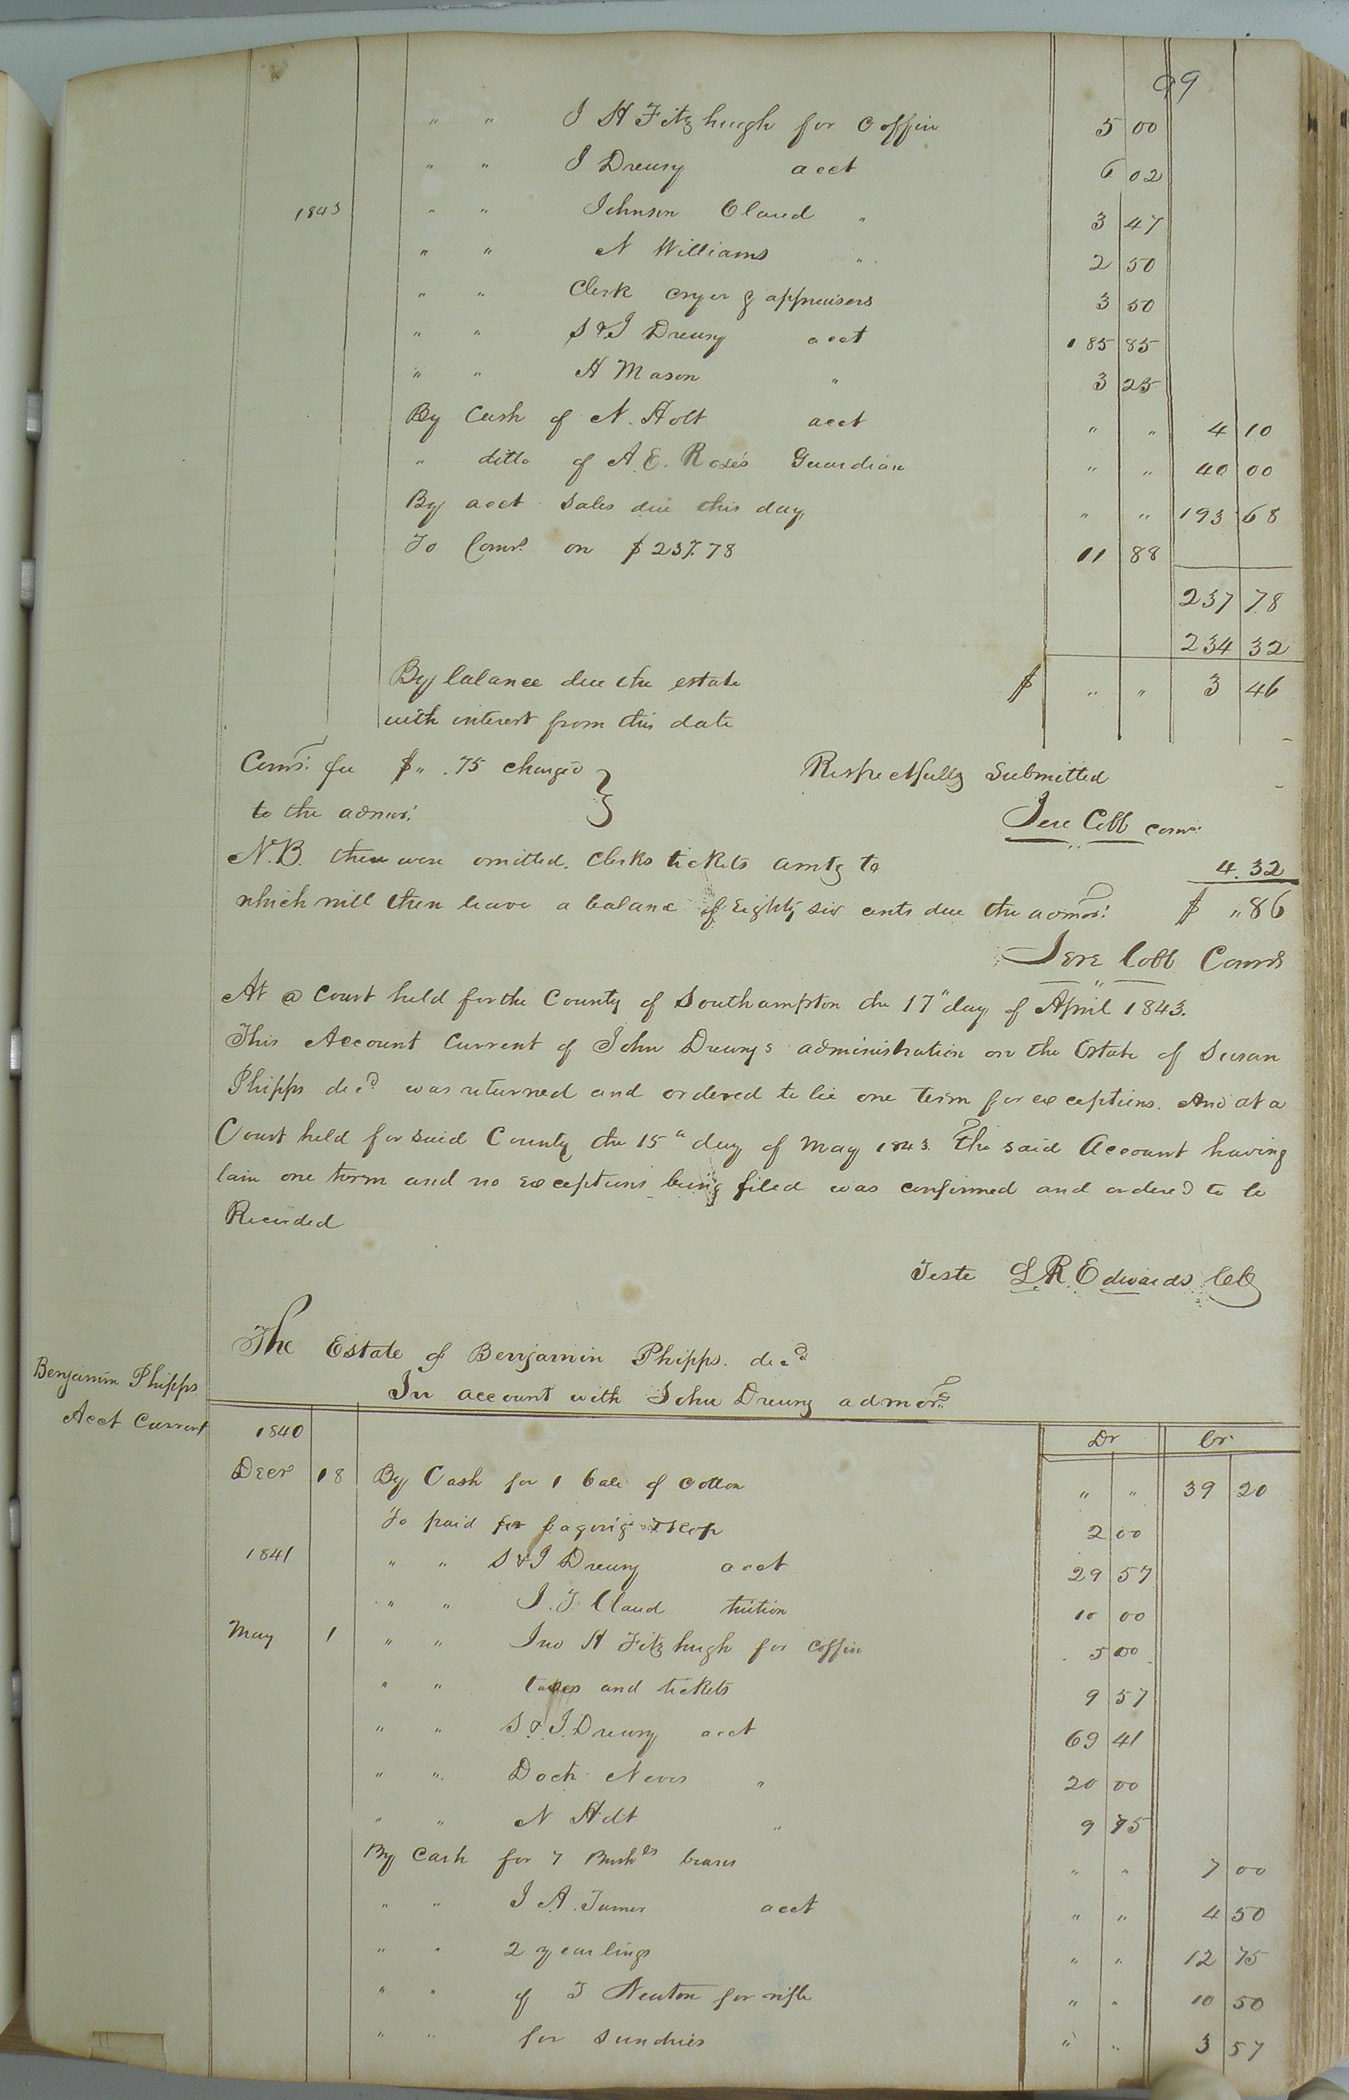 99
" " J H Fitzhugh for Coffin 5 00
" " J Drewry acct 6 02
1843 " " Johnson Claud " 3 47
" " N Williams " 2 50
" " Clerk cryer & appraisers 3 50
" " S & J Drewry acct 185 85
" " H Mason " 3 25
By Cash of N. Holt acct " " 4 10
" ditto of A. E. Rose's Guardian " " 40 00
By acct Sales due this day " " 193 68
To Comrs. on $237.78 11 88
237 78
234 32
By balance due the estate $ " " 3 46
with interest from this date
Comrs. fee $ " .75 charged
to the admor.
Respectfully Submitted
Jere Cobb comr.
N.B. there were omitted. Clerks tickets amtg to 4.32
which will then leave a balance of Eighty six cents due the admor. $ " 86
Jere Cobb Comr
At a Court held for the County of Southampton the 17" day of April 1843.
This Account Current of John Drewrys administration on the Estate of Susan
Phipps decd was returned and ordered to lie one term for exceptions. And at a
Court held for said County the 15" day of May 1843. The said Account having
lain one term and no exceptions being filed was confirmed and ordered to be
Recorded
Teste L R Edwards Clk
The Estate of Benjamin Phipps. decd
In account with John Drewry admor.
Benjamin Phipps
Acct Current
1840 Dr Cr
Decr 18 By Cash for 1 bale of Cotton " " 39 20
To paid for baging & rope 2 00
1841 " " S & J Drewry acct 29 57
" " J. T. Claud tuition 10 00
May 1 " " Jno H Fitzhugh for Coffin 5 00
" " taxes and tickets 9 57
" " S. & J. Drewry acct 69 41
" " Doct. Neves " 20 00
" " N Holt " 9 75
By Cash for 7 Bushls beans " " 7 00
" " J A. Turner acct " " 4 50
" " 2 yearlings " " 12 75
" " of T Newton for rifle " " 10 50
" " for Sundries " " 3 57